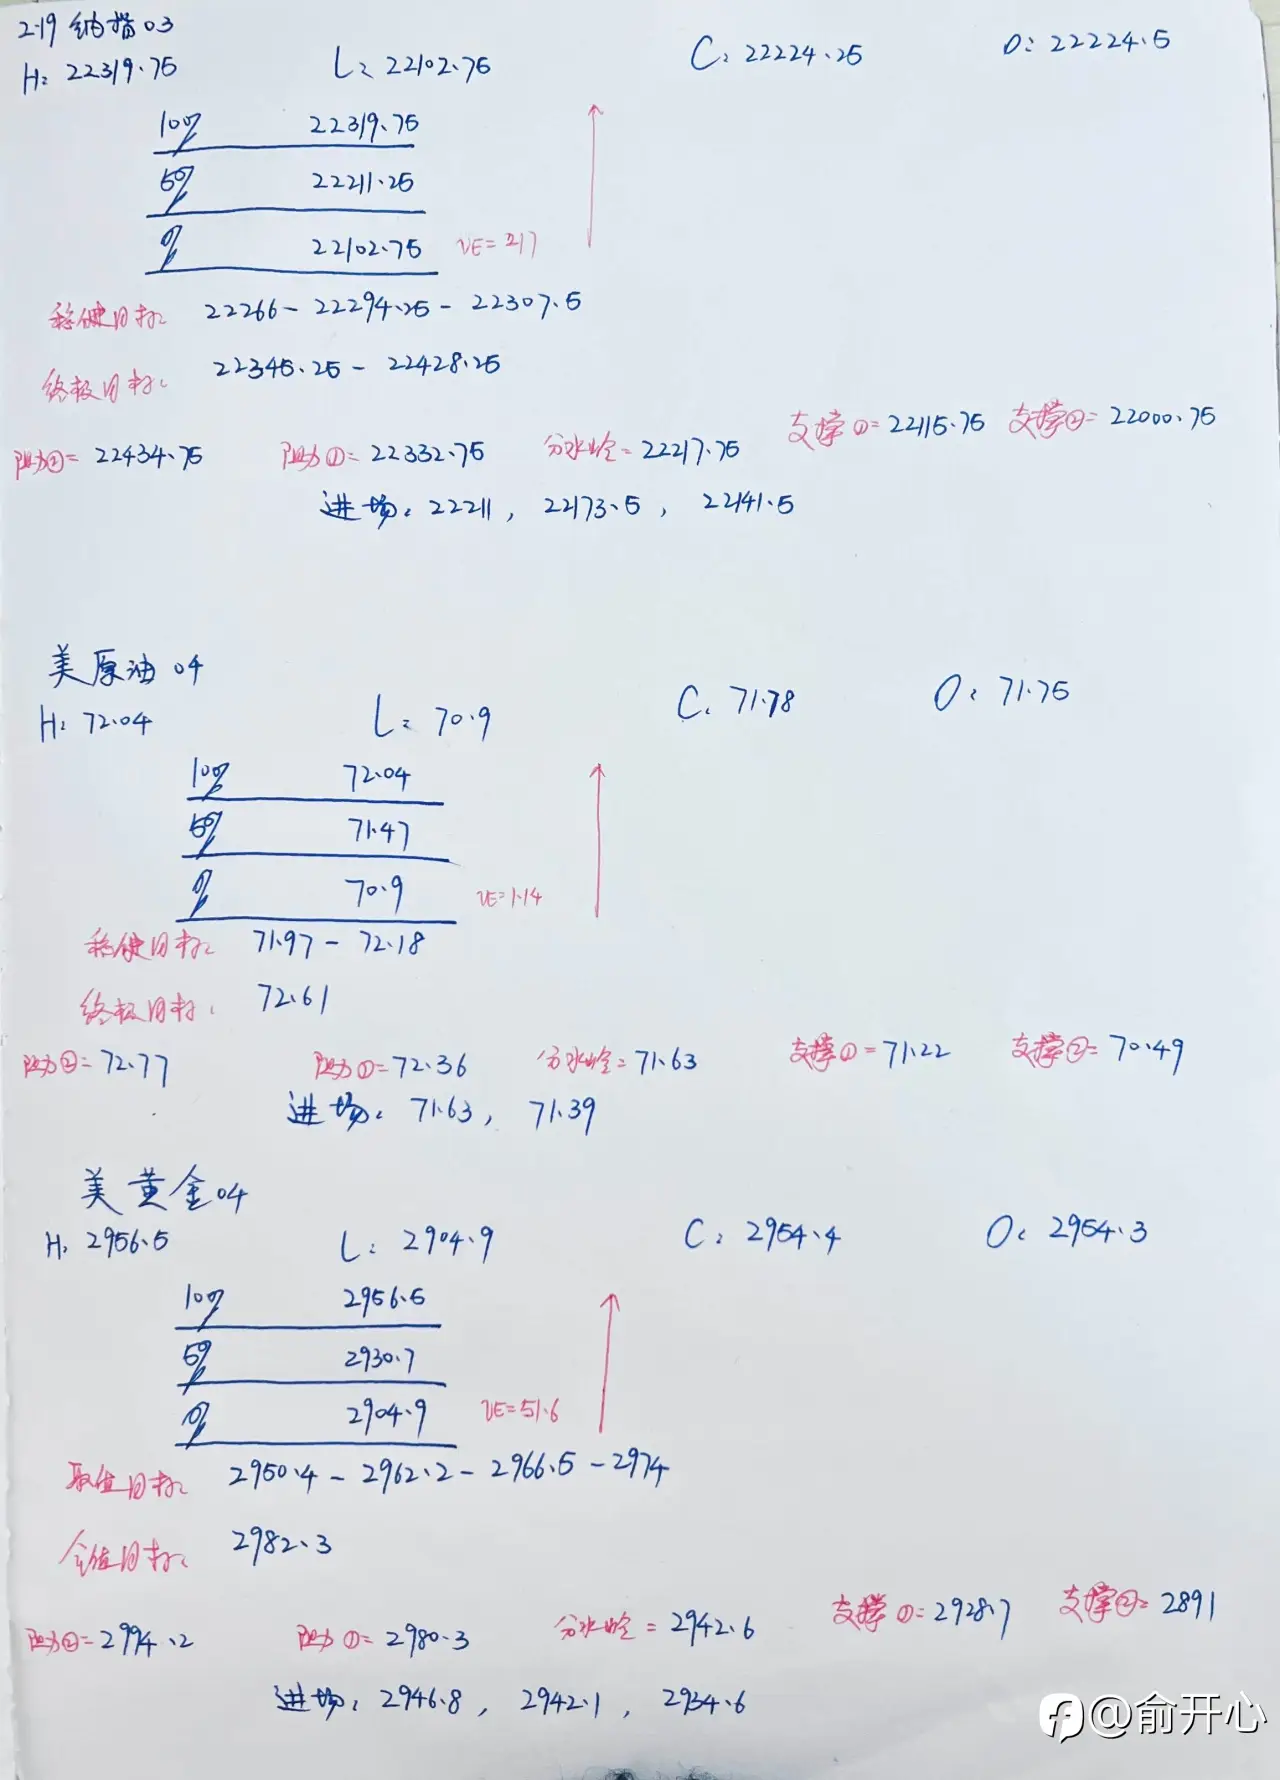 2.19 纳指03
H: 22319.75 L: 22102.75 C: 22224.25 O: 22224.5
100% 22319.75
50% 22211.25
0% 22102.75 VE=217
稳健目标: 22266-22294.25-22307.5
终极目标: 22345.25-22428.25
阻力②=22434.75 阻力①=22332.75 分水岭=22217.75 支撑①=22115.75 支撑②=22000.75
进场: 22211, 22173.5, 22141.5
美原油04
H: 72.04 L: 70.9 C: 71.78 O: 71.75
100% 72.04
50% 71.47
0% 70.9 VE=1.14
稳健目标: 71.97-72.18
终极目标: 72.61
阻力②=72.77 阻力①=72.36 分水岭=71.63 支撑①=71.22 支撑②=70.49
进场: 71.63, 71.39
美黄金04
H: 2956.5 L: 2904.9 C: 2954.4 O: 2954.3
100% 2956.5
50% 2930.7
0% 2904.9 VE=51.6
目标: 2950.4-2962.2-2966.5-2974
目标: 2982.3
阻力②=2994.2 阻力①=2980.3 分水岭=2942.6 支撑①=2928.7 支撑②=2891
进场: 2946.8, 2942.1, 2934.6
@俞开心